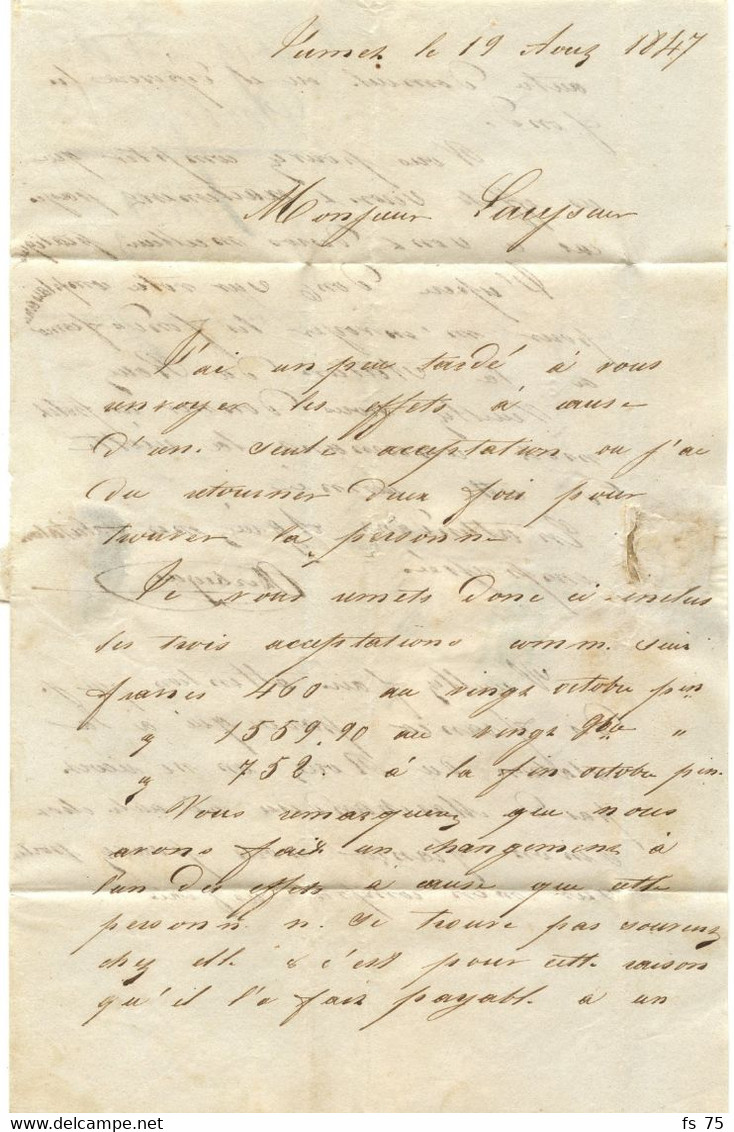 Jumet le 19 Aout 1847
Monsieur
J'ai un peu tardé à vous
envoyer les effets à cause
d'un seule acceptation ou j'ai
du retourner deux fois pour
trouver la personne
Je vous remets donc ci-inclus
les trois acceptations comme suit
francs 460 au vingt octobre pn
" 1559.90 au vingt 9bre "
" 752. à la fin octobre pn.
Vous remarquerez que nous
avons fait un changement à
l'un des effets à cause que cette
personne ne se trouve pas souvent
chez elle & c'est pour cette raison
qu'il l'a fait payable à un
fs 75